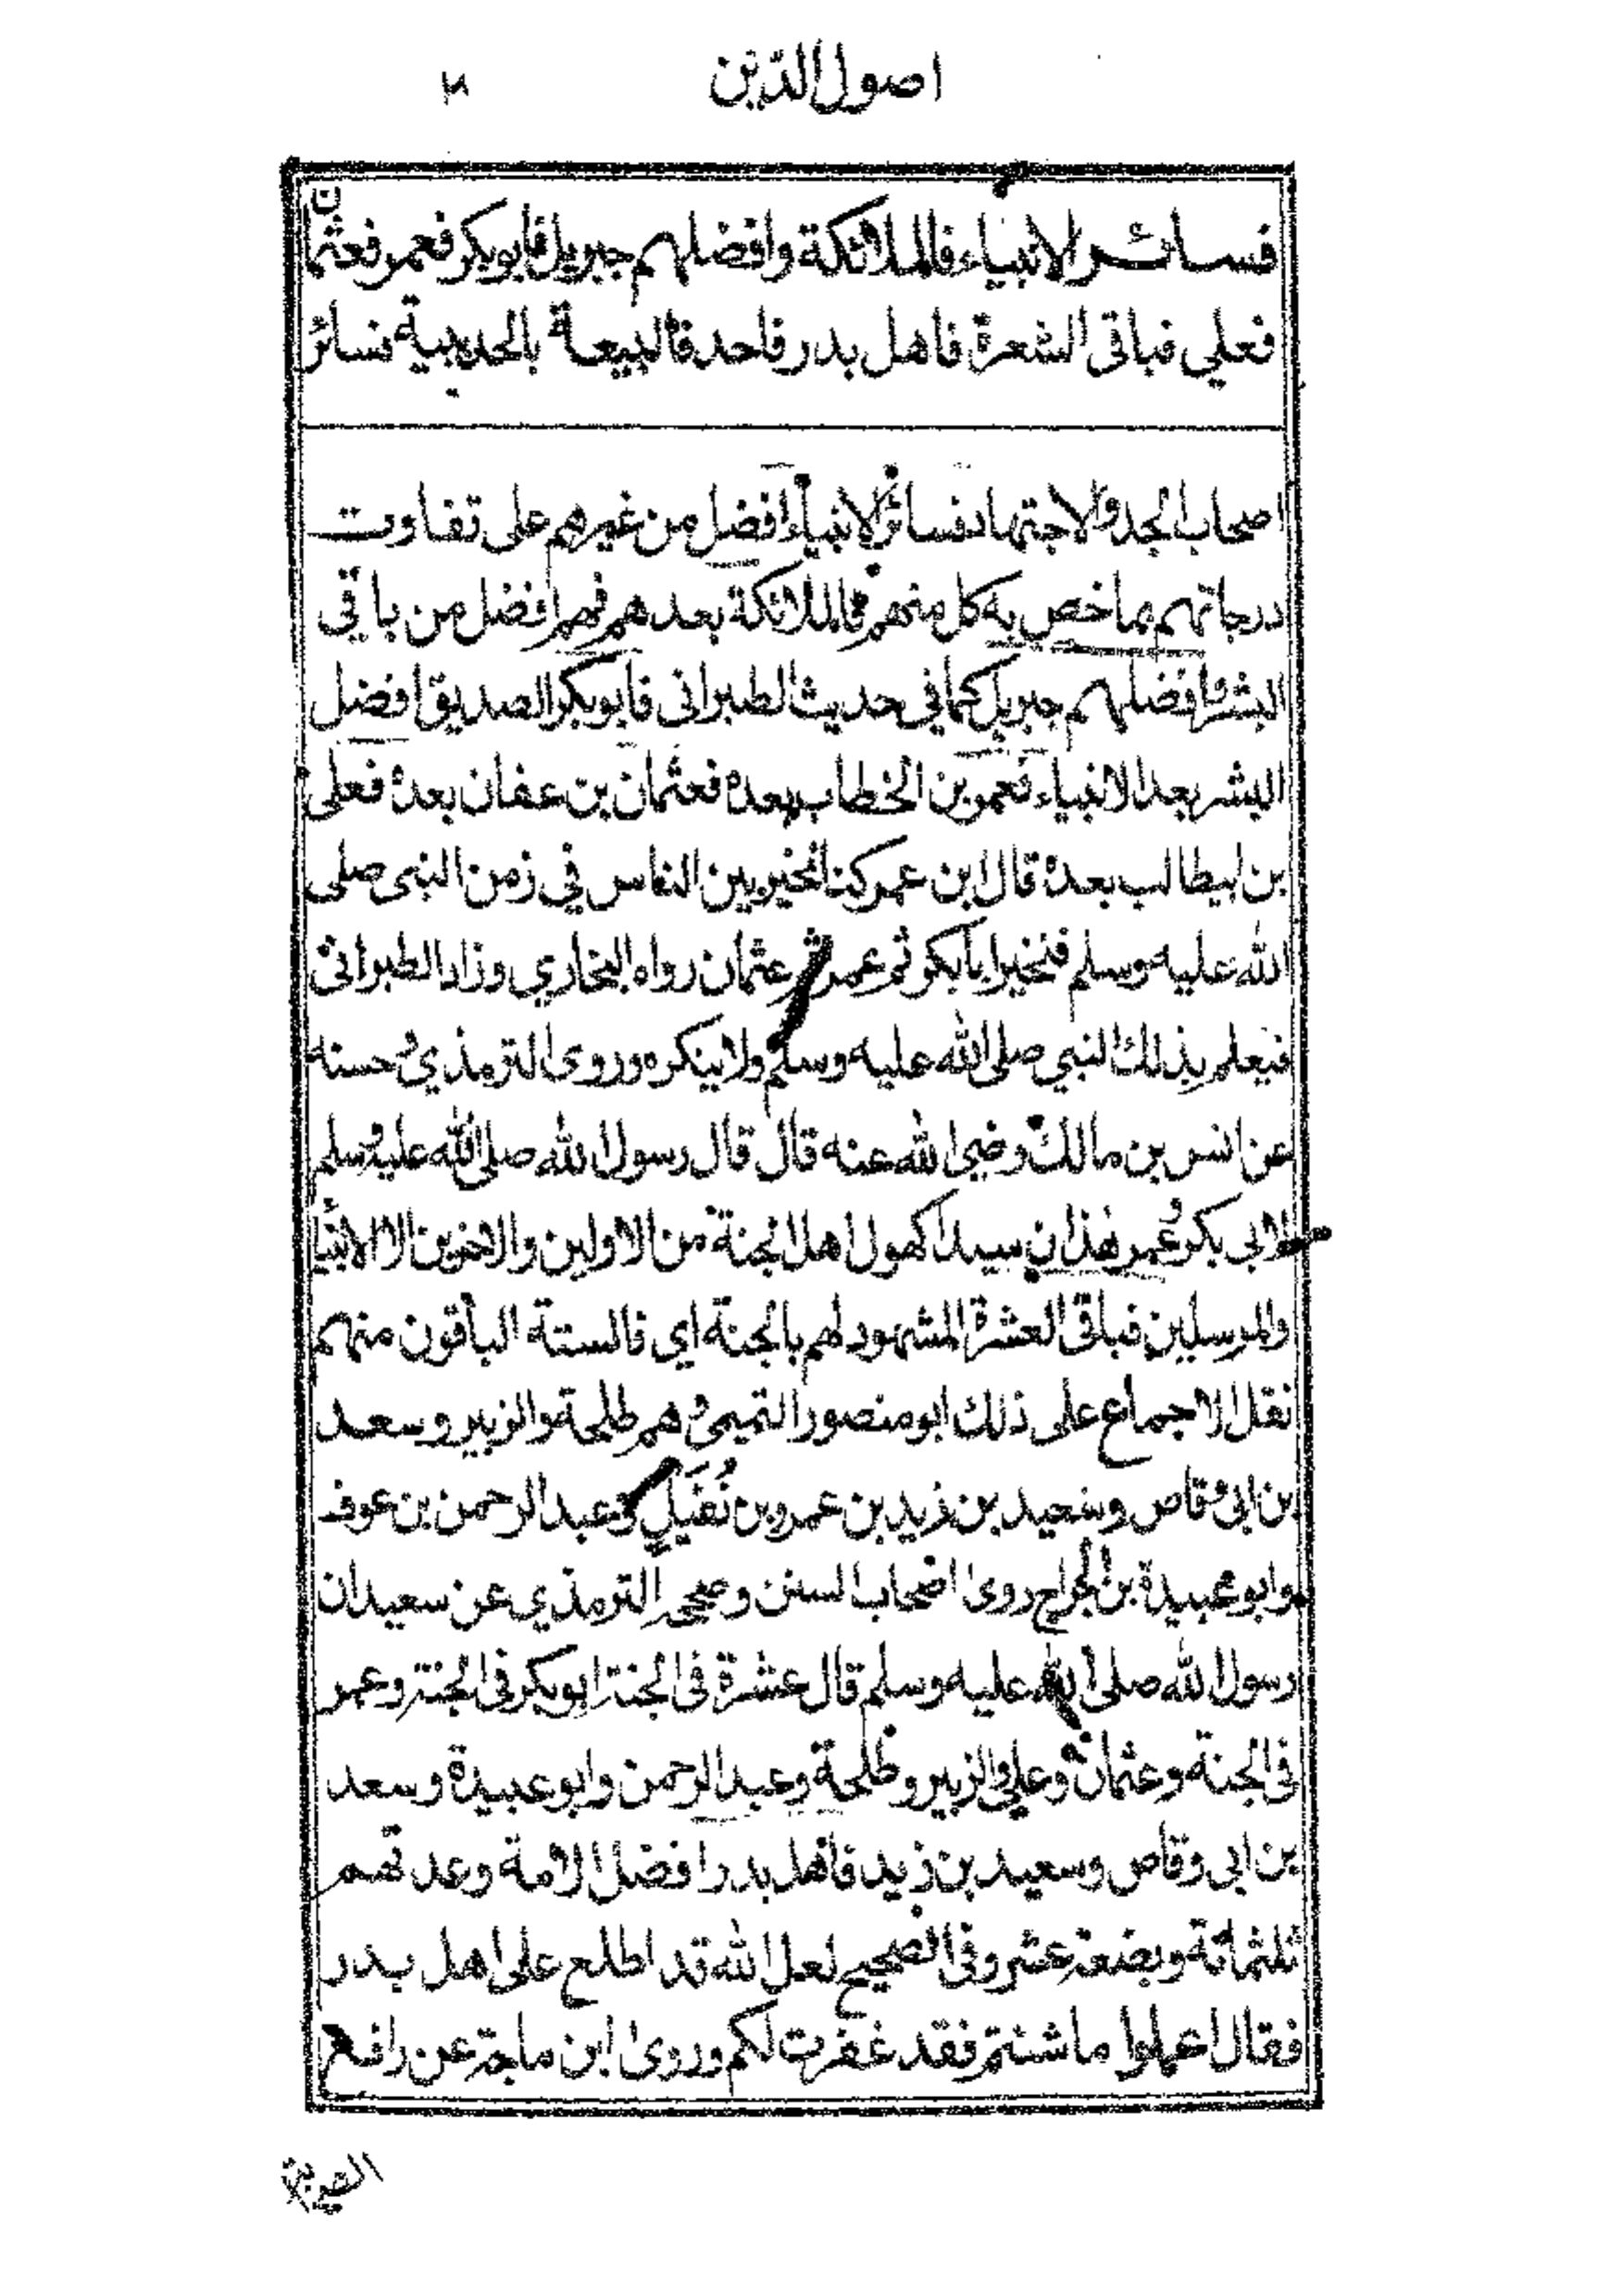 اصول الدين ٣
فسائر الانبياء فالملائكة وافضلهم جبريل فابوبكر فعمر فعثمان
فعلي فباقى الشعرة فاهل بدر فاحد فالبيعة بالحديبية فسائر
اصحاب الجد والاجتهاد فسائر الانبياء افضل من غيرهم على تفاوت
درجاتهم بما خص به كل منهم فالملائكة بعدهم فهم افضل من باقي
البشر وافضلهم جبريل كما في حديث الطبرانى فابوبكر الصديق افضل
البشر بعد الانبياء فعمر بن الخطاب بعده فعثمان بن عفان بعده فعلى
بن ابيطالب بعده قال ابن عمر كنا نخير بين الناس في زمن النبى صلى
الله عليه وسلم فنخير ابا بكر ثم عمر ثم عثمان رواه البخاري وزاد الطبرانى
فيعلم بذلك النبي صلى الله عليه وسلم ولا ينكره وروى الترمذي وحسنه
عن انس بن مالك رضى الله عنه قال قال رسول الله صلى الله عليه وسلم
لابى بكر وعمر هذان سيدا كهول اهل الجنة من الاولين والاخرين الا الانبيا
والمرسلين فباقى العشرة المشهود لهم بالجنة اي فالستة الباقون منهم
نقل الاجماع على ذلك ابو منصور التميمى وهم طلحة والزبير وسعد
بن ابى وقاص وسعيد بن زيد بن عمرو بن نُفَيل وعبد الرحمن بن عوف
وابو عبيدة بن الجراح روى اصحاب السنن وصححه الترمذي عن سعيد ان
رسول الله صلى الله عليه وسلم قال عشرة فى الجنة ابو بكر فى الجنة وعمر
فى الجنة وعثمان وعلي والزبير وطلحة وعبد الرحمن وابو عبيدة وسعد
بن ابى وقاص وسعيد بن زيد فاهل بدر افضل الامة وعدتهم
ثلثمائة وبضعة عشر وفى الصحيح لعل الله قد اطلع على اهل بدر
فقال اعملوا ما شئتم فقد غفرت لكم وروى ابن ماجة عن رافع